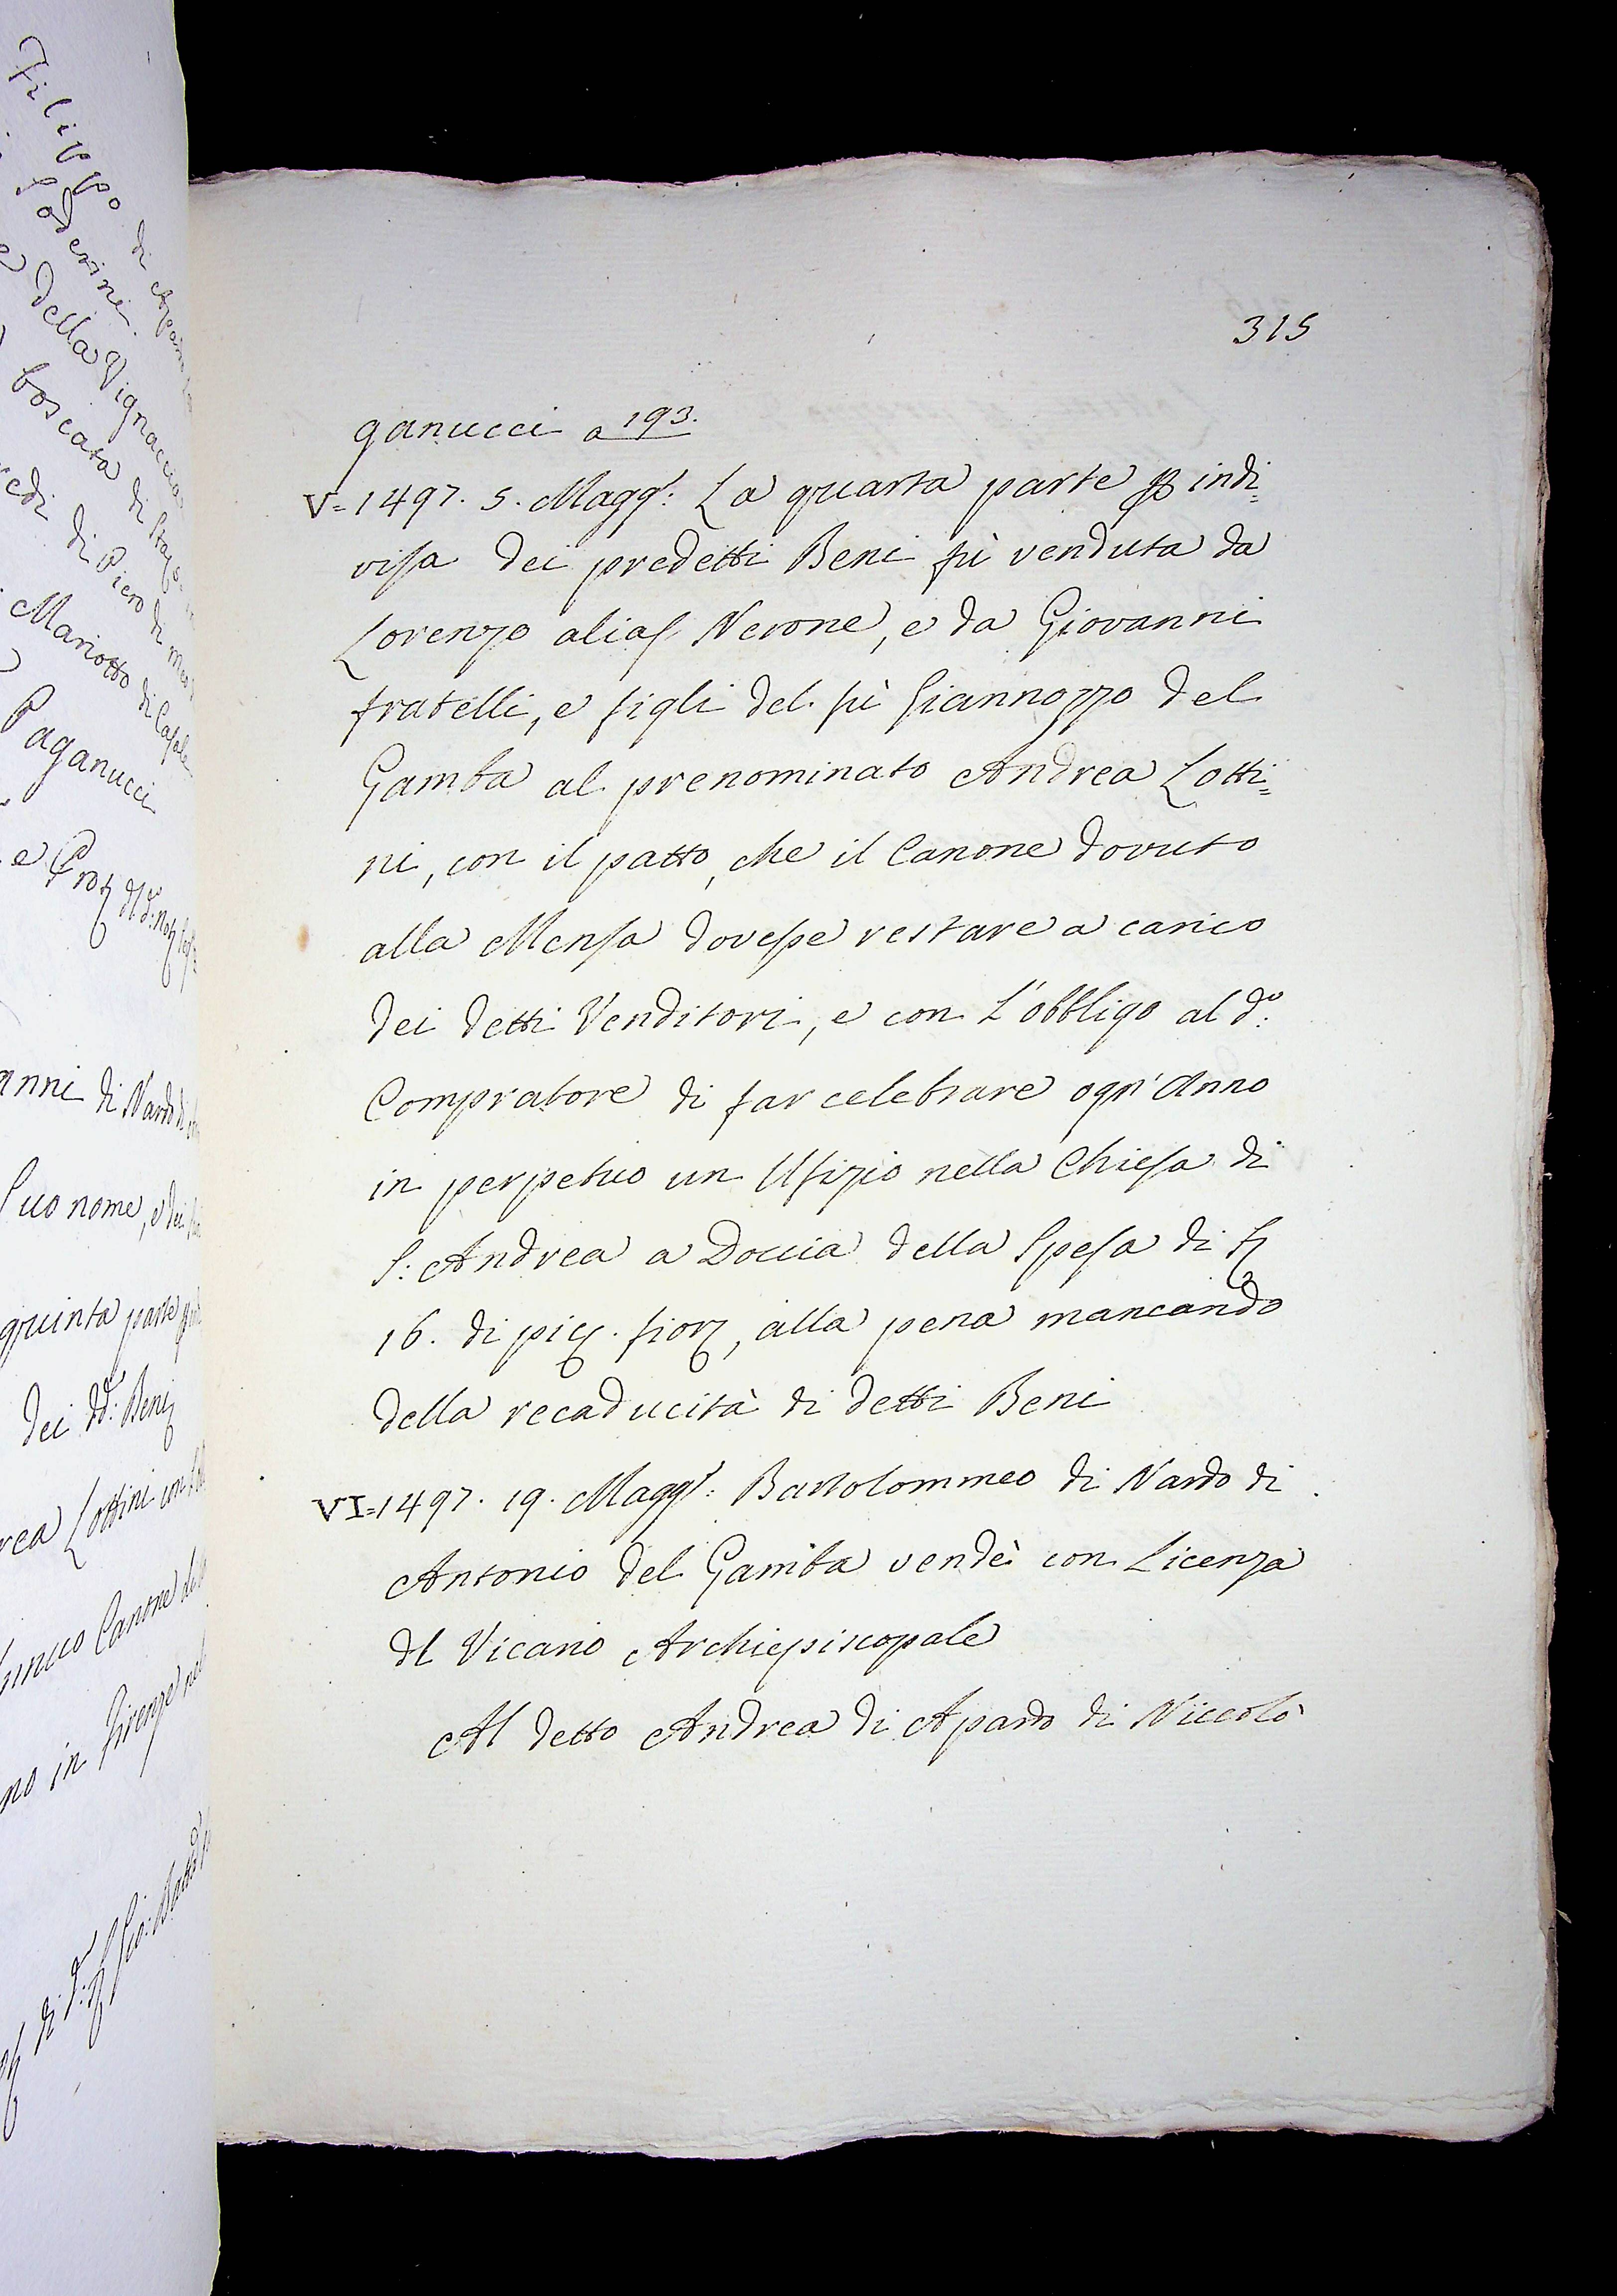 315
ganucci a 193.
V=1497. 5. Magg.º: La quarta parte p indi=
visa dei predetti Beni fù venduta da
Lorenzo alias Nerone, e da Giovanni
fratelli, e figli del fù Giannozzo del
Gamba al prenominato Andrea Lotti=
ni, con il patto, che il Canone dovuto
alla Mensa dovesse restare a carico
dei detti Venditori, e con L'obbligo al d.º
Compratore di far celebrare ogn'Anno
in perpetuo un Ufizio nella Chiesa di
S: Andrea a Doccia della Spesa di
16. di picc. fior, alla pena mancando
della recaducità di detti Beni
VI=1497. 19. Magg.º: Bartolommeo di Nardo di
Antonio del Gamba vendè con Licenza
dl Vicario Archiepiscopale
Al detto Andrea di Apardo di Niccolò
Filippo di
della Vignaccia
boscata di
redi di Piero di
Mariotto di Casale
Paganucci
e
anni di Nardo di
Suo nome, e dei
quinta parte
dei dd: Beni
rea Lottini con
Canone di
no in Firenze nel
di